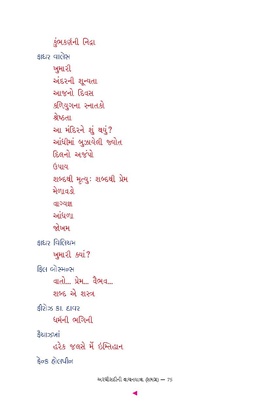 કુંભકર્ણની નિદ્રા
ફાધર વાલેસ
ખુમારી
અંદરની શૂન્યતા
આજનો દિવસ
કળિયુગના સ્નાતકો
શ્રેષ્ઠતા
આ મંદિરને શું થયું?
આંધીમાં બુઝાયેલી જ્યોત
દિલનો અજંપો
ઉપાય
શબ્દથી મૃત્યુ: શબ્દથી પ્રેમ
મેળાવડો
વાગ્યજ્ઞ
આંધળા
જોખમ
ફાધર વિલિયમ
ખુમારી ક્યાં?
ફિલ બોસ્મન્સ
વાતો... પ્રેમ... વૈભવ...
શબ્દ એ શસ્ત્ર
ફીરોઝ કા. દાવર
ધર્મની ભગિની
ફૈયાઝખાં
હરેક જલસે મેં ઇમ્તિહાન
ફ્રેન્ક હોલપીન
અરધીસદીની વાચનયાત્રા (સમગ્ર) — 75